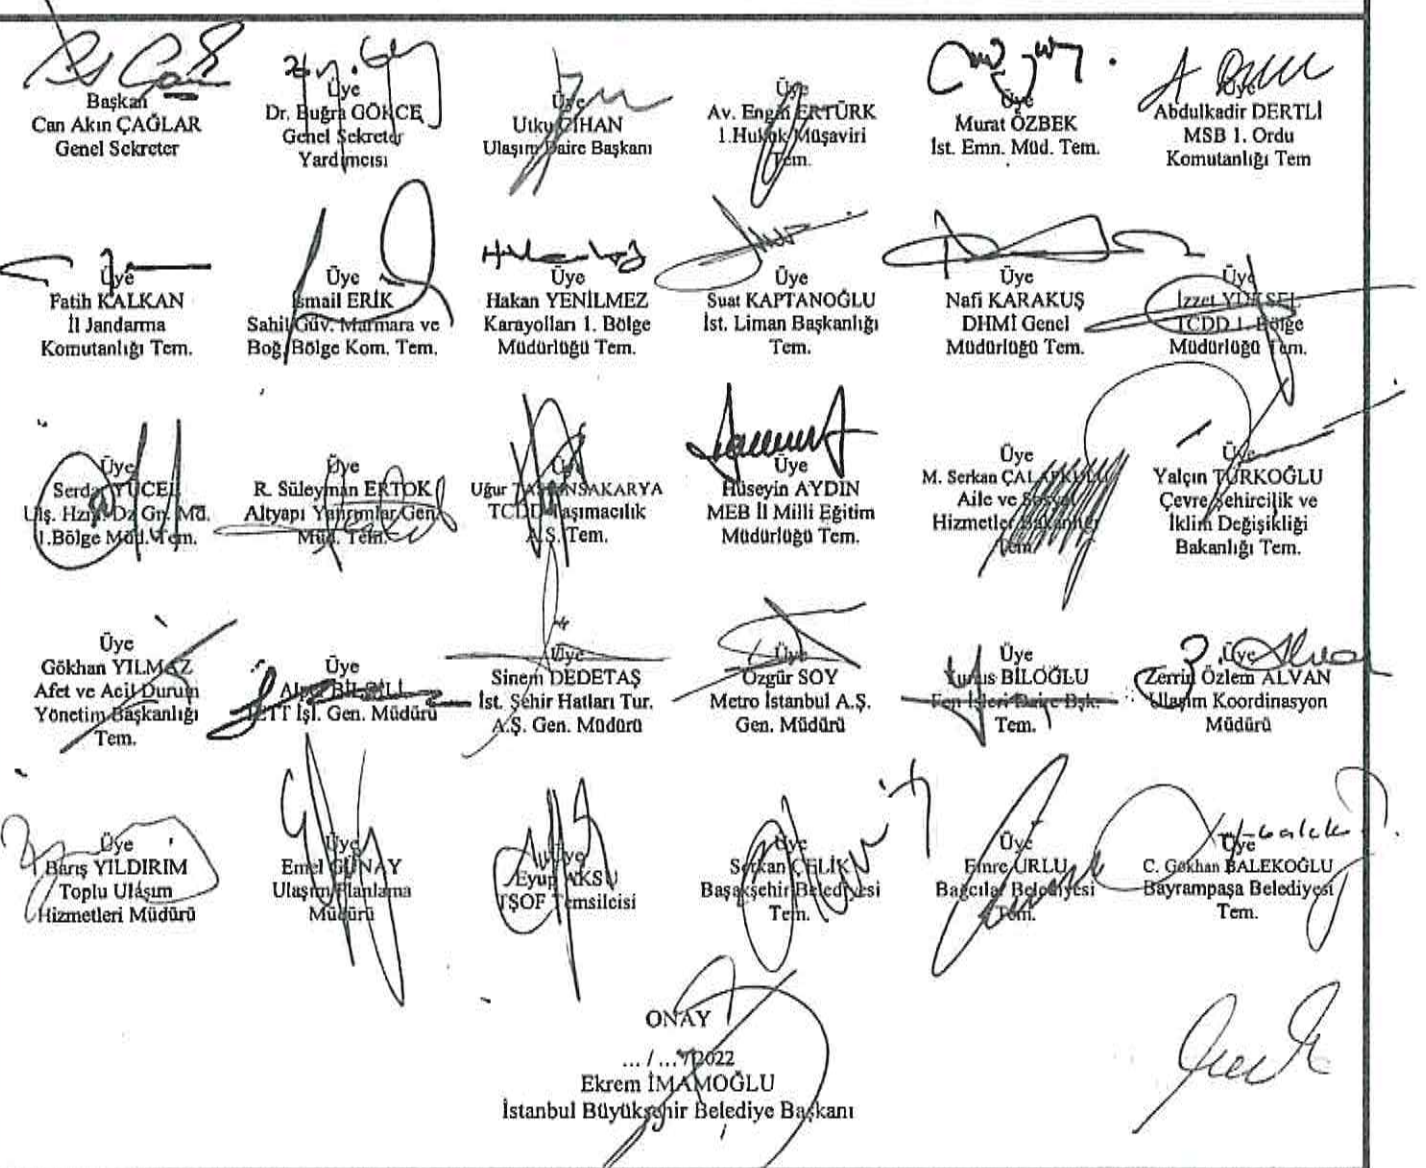 Başkan
Can Akın ÇAĞLAR
Genel Sekreter
Üye
Dr. Buğra GÖKCE
Genel Sekreter
Yardımcısı
Üye
Utku CİHAN
Ulaşım Daire Başkanı
Üye
Av. Engin ERTÜRK
1.Hukuk Müşaviri
Tem.
Üye
Murat ÖZBEK
İst. Emn. Müd. Tem.
Üye
Abdulkadir DERTLİ
MSB 1. Ordu
Komutanlığı Tem
Üye
Fatih KALKAN
İl Jandarma
Komutanlığı Tem.
Üye
İsmail ERİK
Sahil Güv. Marmara ve
Boğ. Bölge Kom. Tem.
Üye
Hakan YENİLMEZ
Karayolları 1. Bölge
Müdürlüğü Tem.
Üye
Suat KAPTANOĞLU
İst. Liman Başkanlığı
Tem.
Üye
Nafi KARAKUŞ
DHMİ Genel
Müdürlüğü Tem.
İzzet YÜKSEL
TCDD 1. Bölge
Müdürlüğü Tem.
Üye
Serdar YÜCEL
Ulş. Hzm. Dz Gn. Md.
1.Bölge Müd. Tem.
Üye
R. Süleyman ERTOK
Altyapı Yatırımlar Gen.
Müd. Tem.
Üye
Uğur
TCDD Taşımacılık
A.Ş. Tem.
Üye
Hüseyin AYDIN
MEB İl Milli Eğitim
Müdürlüğü Tem.
Üye
M. Serkan
Aile ve Sosyal
Hizmetler Bakanlığı
Tem.
Üye
Yalçın TÜRKOĞLU
Çevre Şehircilik ve
İklim Değişikliği
Bakanlığı Tem.
Üye
Gökhan YILMAZ
Afet ve Acil Durum
Yönetim Başkanlığı
Tem.
Üye
Alper BİLGİLİ
İETT İşl. Gen. Müdürü
Üye
Sinem DEDETAŞ
İst. Şehir Hatları Tur.
A.Ş. Gen. Müdürü
Üye
Özgür SOY
Metro İstanbul A.Ş.
Gen. Müdürü
Üye
Yunus BİLOĞLU
Fen İşleri Daire Bşk.
Tem.
Üye
Zerrin Özlem ALVAN
Ulaşım Koordinasyon
Müdürü
Üye
Barış YILDIRIM
Toplu Ulaşım
Hizmetleri Müdürü
Üye
Emel GÜNAY
Ulaşım Planlama
Müdürü
Üye
Eyup AKSU
TŞOF Temsilcisi
Üye
Serkan ÇELİK
Başakşehir Belediyesi
Tem.
Üye
Emre URLU
Bağcılar Belediyesi
Tem.
Üye
C. Gökhan BALEKOĞLU
Bayrampaşa Belediyesi
Tem.
ONAY
... / ... /2022
Ekrem İMAMOĞLU
İstanbul Büyükşehir Belediye Başkanı